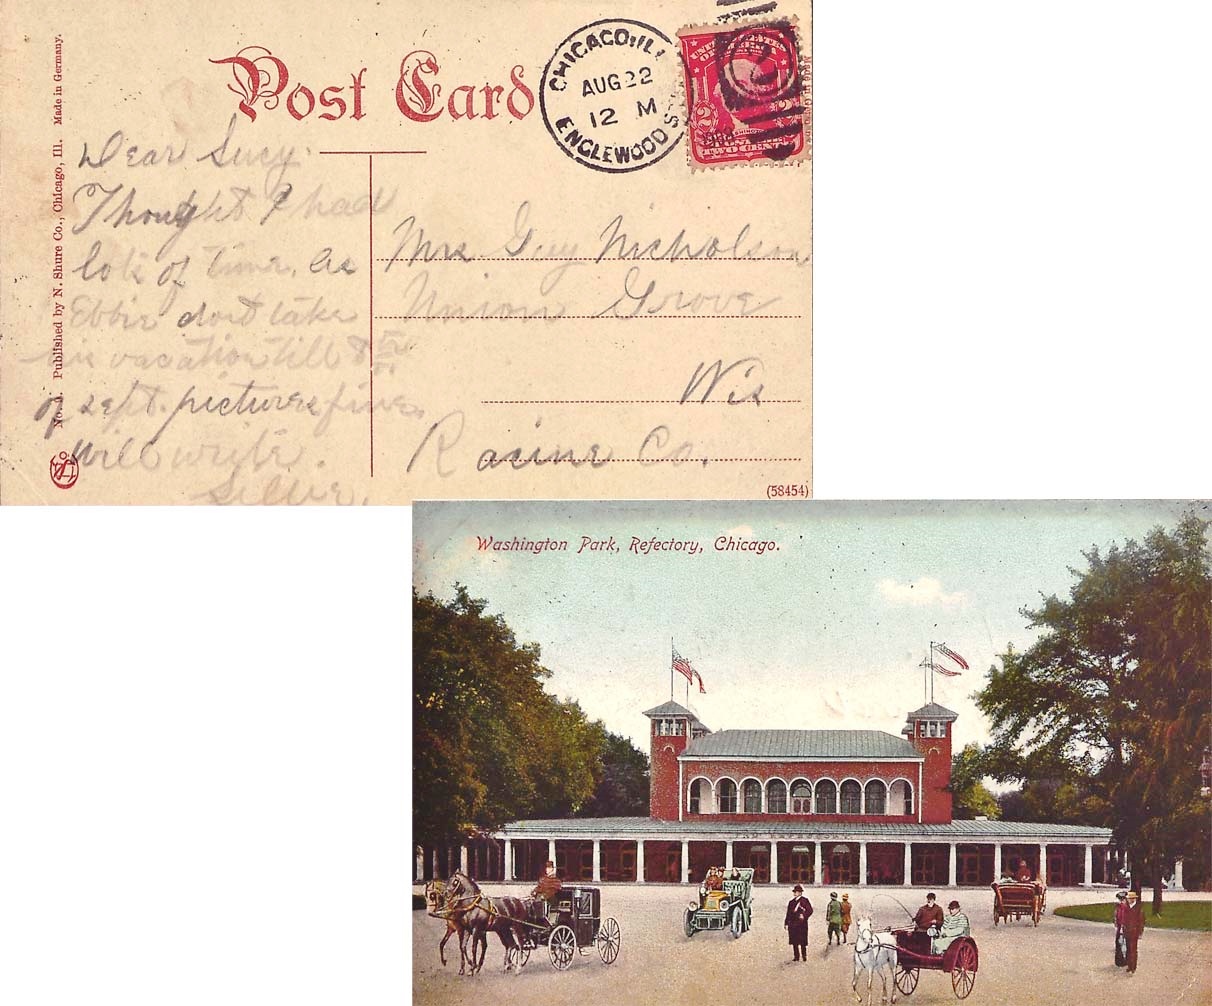 No. 1. Published by N. Shure Co., Chicago, Ill. Made in Germany.
Post Card
CHICAGO, ILL
AUG 22
12 M
ENGLEWOOD S
UNITED STATES
OF AMERICA
2
TWO CENTS
Dear Lucy.
Thought I had
lots of time, as
Ebbie dont take
his vacation till 8
of sept. pictures fine
Will write.
Mrs Guy Nicholson
Union Grove
Wis
Racine Co.
(58454)
Washington Park, Refectory, Chicago.